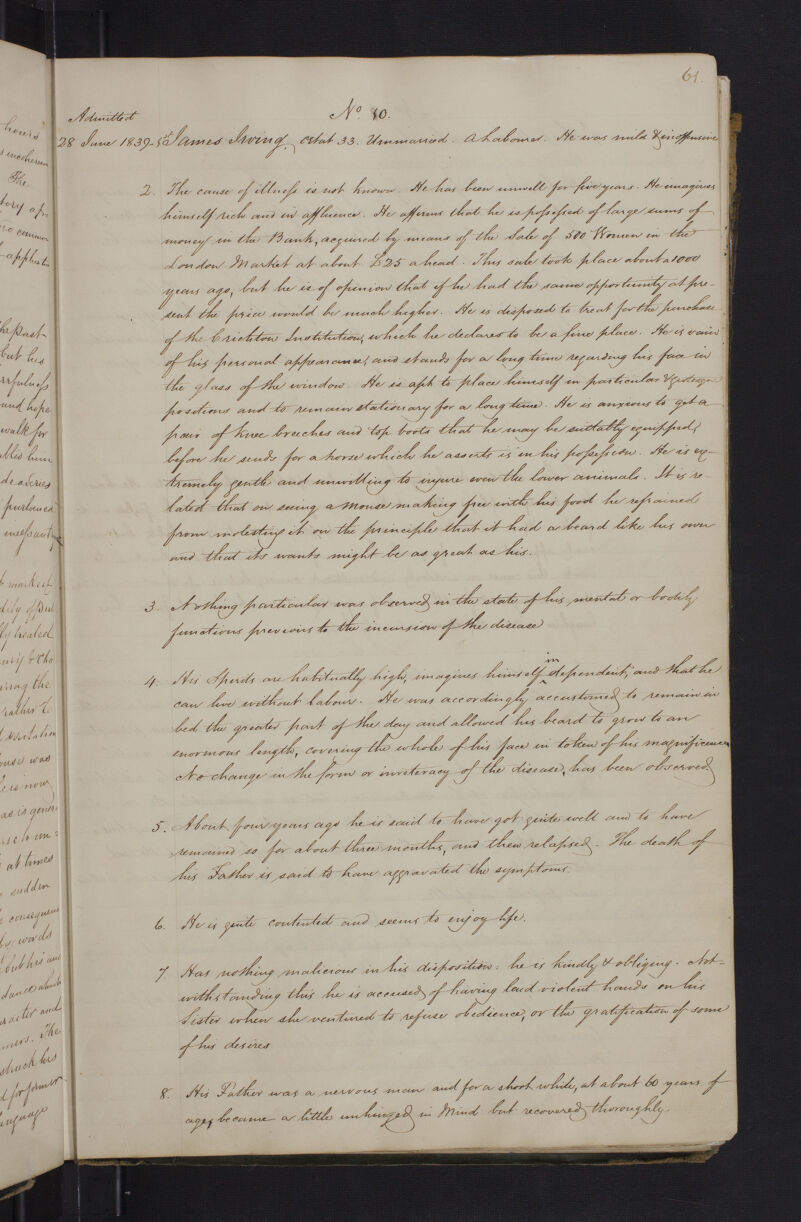 61.
Admitted
No. 10.
28 June 1839 - 1st James Irving, Ætat 33. Unmarried. a Labourer. He was mild & inoffensive
2. The cause of illness is not known. He has been unwell for five years. He imagines
himself rich and in affluence. He affirms that he is possessed of large sums of
money in the Bank, acquired by means of the Sale of 500 Women in the
London Market at about £25 a head. This sale took place about a 1000
years ago, but he is of opinion that if he had the same opportunity at pre-
sent the price would be much higher. He is disposed to treat for the purchase
of the Crichton Institution, which he declares to be a fine place. He is vain
of his personal appearance, and stands for a long time regarding his face in
the glass of the window. He is apt to place himself in particular &
positions and to remain stationary for a long time. He is anxious to get a
pair of knee breeches and top boots that he may be suitably equipped,
before he sends for a horse which he asserts is in his possession. He is ex-
tremely gentle and unwilling to injure even the lower animals. It is re-
lated that on seeing a mouse making free with his food he refrained
from molesting it on the principle that it had a beard like his own
and that its wants might be as great as his.
3. Nothing particular was observed in the state of his mental or bodily
functions previous to the incursion of the disease
4. His Spirits are habitually high, imagines himself independent, and that he
can live without labour. He was accordingly accustomed to remain in
bed the greater part of the day and allowed his beard to grow to an
enormous length, covering the whole of his face in token of his magnificence
No change in the form or inveteracy of the disease, has been observed
5. About four years ago he is said to have got quite well and to have
remained so for about three months, and then relapsed. The death of
his Father is said to have aggravated the symptoms.
6. He is quite contented and seems to enjoy life.
7. Has nothing malicious in his disposition: he is kindly & obliging. Not-
withstanding this he is accused of having laid violent hands on his
Sister when she ventured to refuse obedience, or the gratification of some
of his desires
8. His Father was a nervous man and for a short while, at about 60 years of
age, became a little unhinged in Mind but recovered thoroughly.